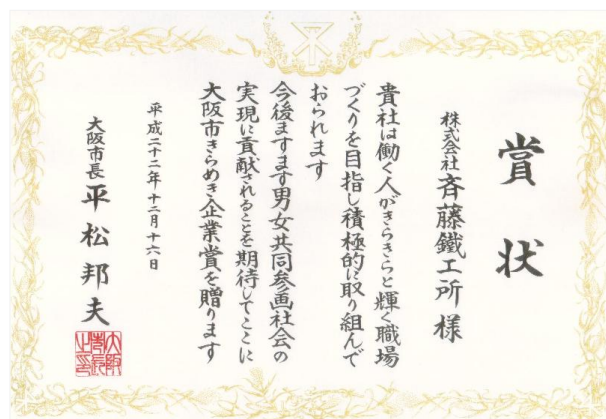 賞状
株式会社 斉藤鐵工所 様
貴社は働く人がきらきらと輝く職場
づくりを目指し積極的に取り組んで
おられます
今後ますます男女共同参画社会の
実現に貢献されることを期待してここに
大阪市きらめき企業賞を贈ります
平成二十二年十二月十六日
大阪市長 平松邦夫
大阪市長之印